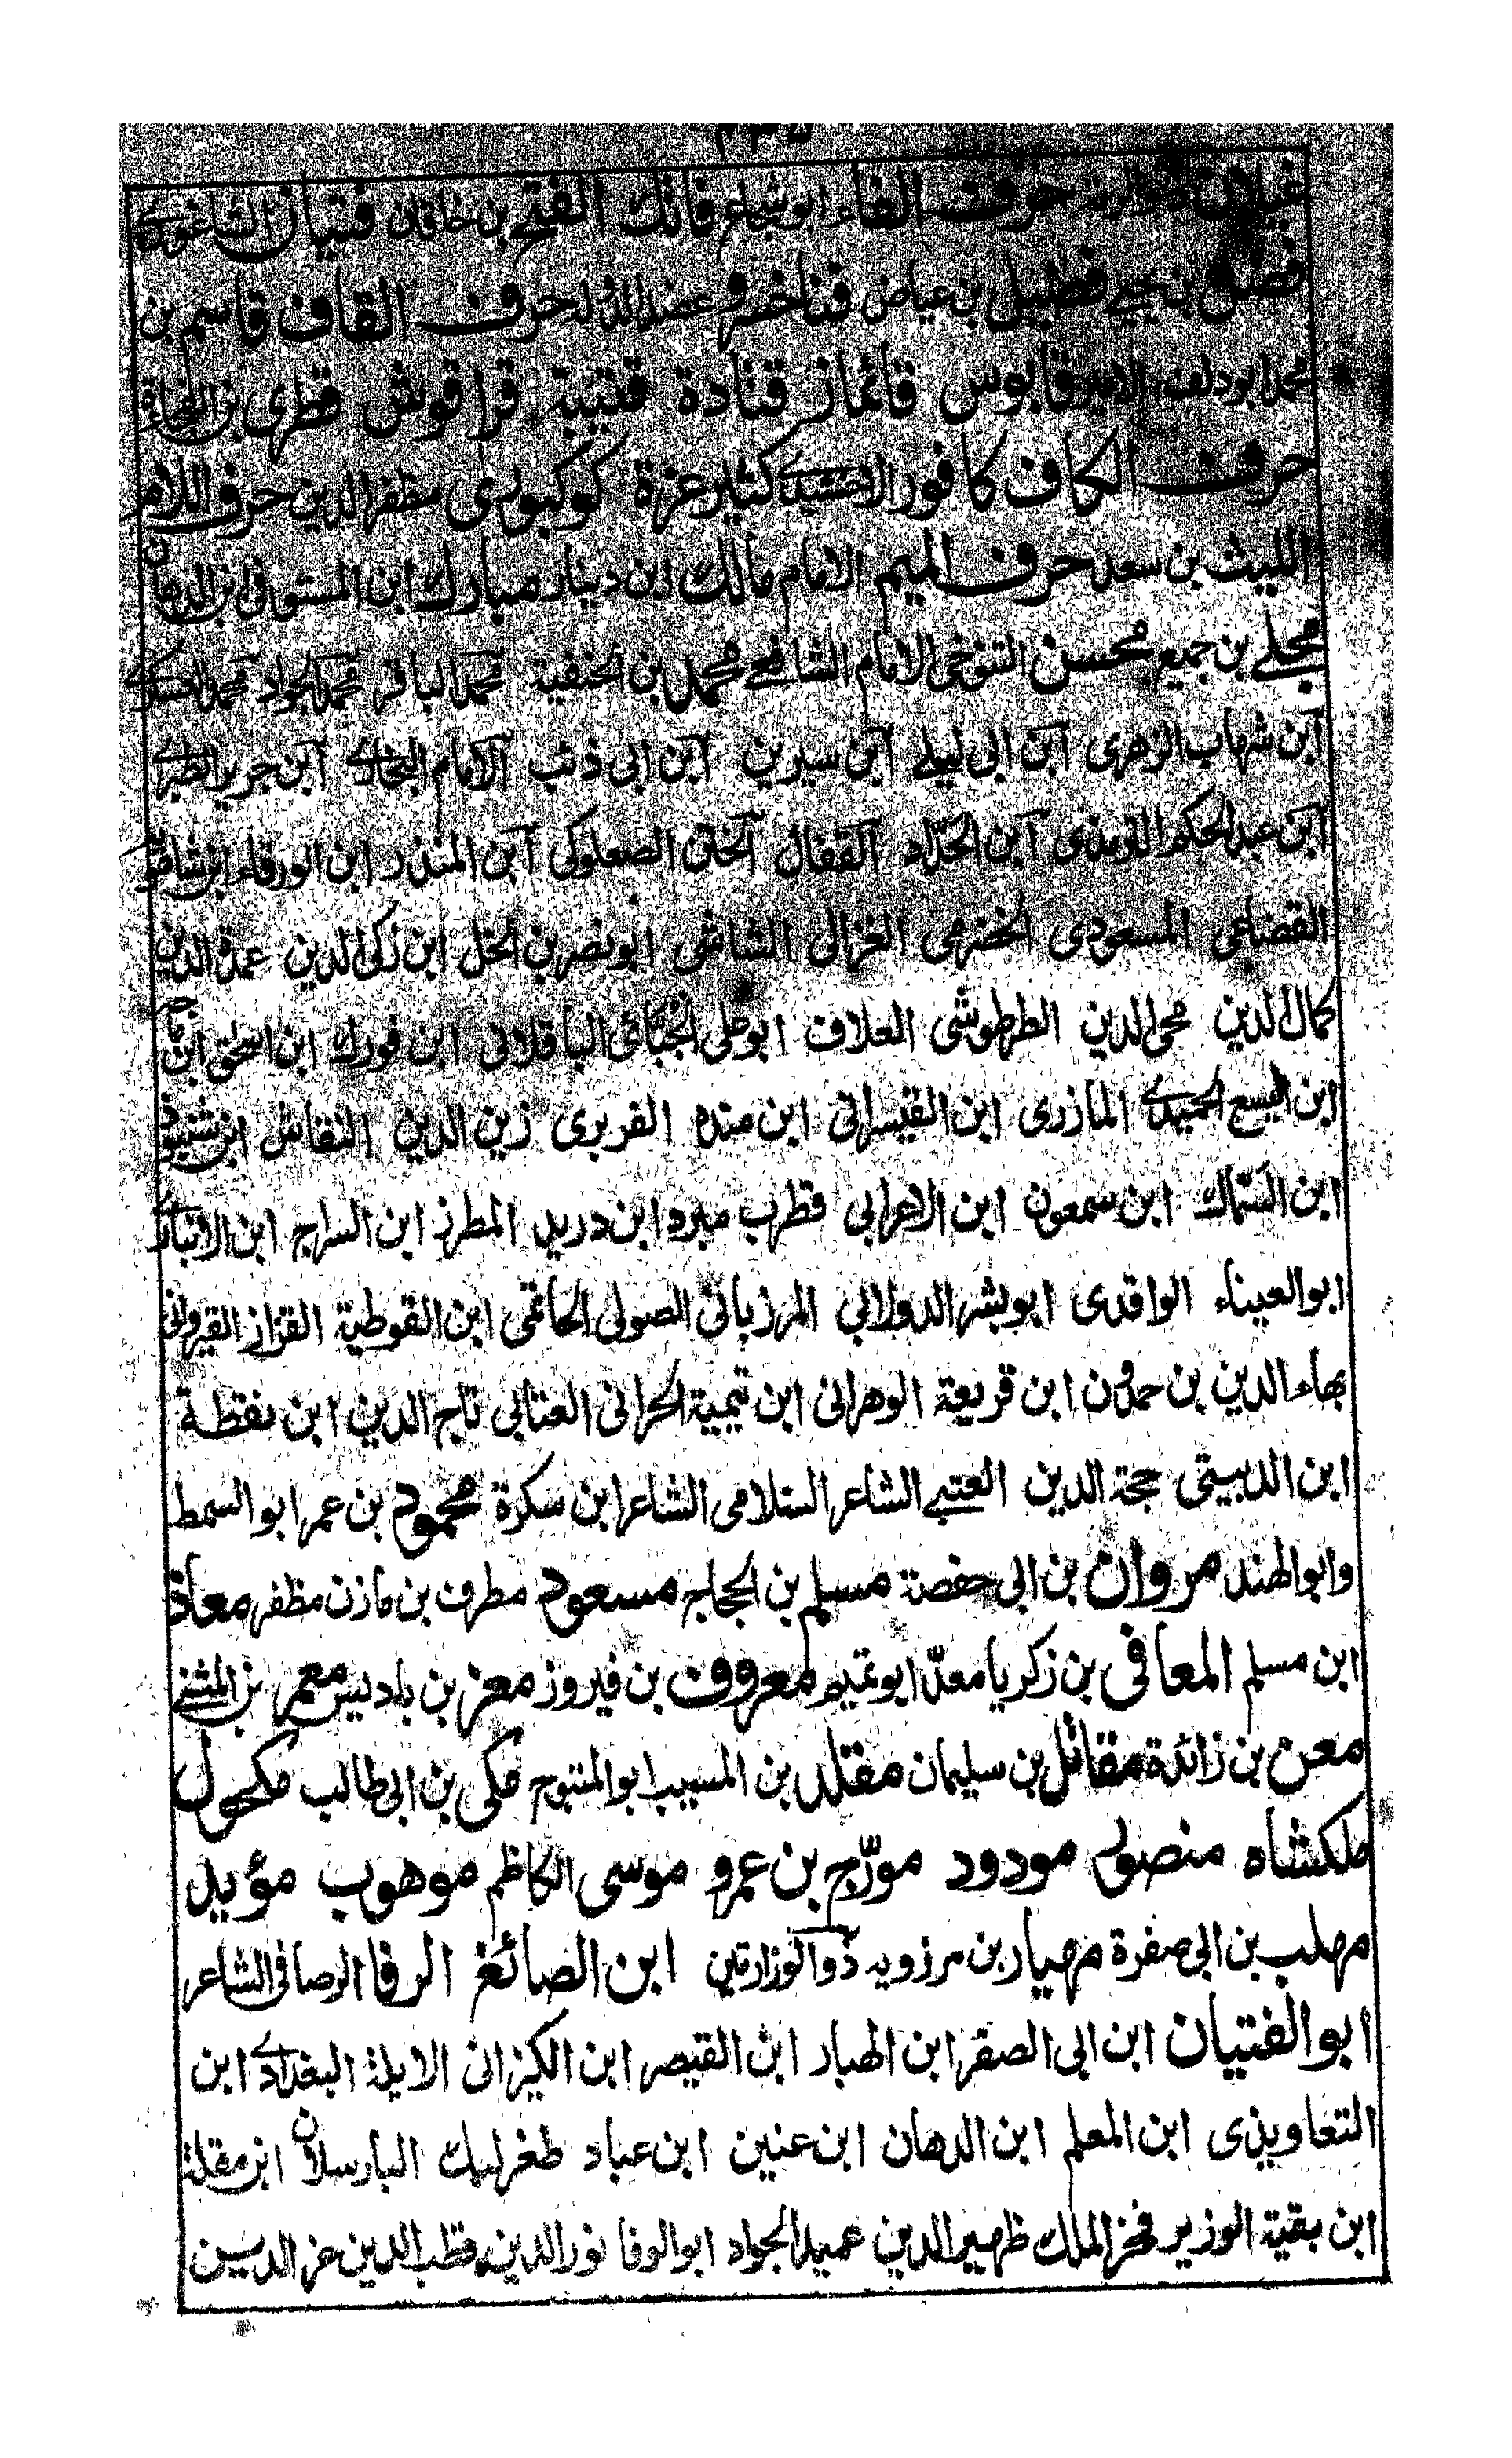 غيلان ذو الرمة حرف الفاء ابو شجاع فاتك الفتح بن خاقان فتيان الشاغوري
فضل بن يحيى فضيل بن عياض فناخسرو عضد الدولة حرف القاف قاسم بن
محمد ابو دلف الامير قابوس قائماز قتادة قتيبة قراقوش قطرى بن الفجاءة
حرف الكاف كافور الاخشيدى كثير عزة كوكبورى مظفر الدين حرف اللام
الليث بن سعد حرف الميم الامام مالك ابن دينار مبارك ابن المستوفى ابن الدهان
مجلى بن جميع محسن التنوخى الامام الشافعى محمد بن الحنفية محمد الباقر محمد الجواد محمد العسكرى
ابن شهاب الزهرى ابن ابى ليلى ابن سيرين ابن ابى ذئب الامام البخارى ابن جرير الطبرى
ابن عبد الحكم الترمذى ابن الحداد القفال الختن الصعلوكى ابن المنذر ابن الورقاء ابن شاقلا
القضاعى المسعودى الخضرمى الغزالى الشاشى ابو نصر بن الخل ابن زكى الدين عمدة الدين
كمال الدين محى الدين الطرطوشى العلاف ابو على الجبائى الباقلانى ابن فورك ابن اسحق ابن
ابن اليسع الحميدى المازرى ابن القيسرانى ابن منده الفربرى زين الدين النقاش ابن شنبوذ
ابن السماك ابن سمعون ابن الاعرابى قطرب مبرد ابن دريد المطرز ابن السراج ابن الانبارى
ابو العيناء الواقدى ابو بشر الدولابى المرزبانى الصولى الحاتمى ابن القوطية القزاز القيروانى
بهاء الدين بن حمدون ابن قريعة الوهرانى ابن تيمية الحرانى العتابى تاج الدين ابن نقطة
ابن الدبيثى حجة الدين العتبى الشاعر السلامى الشاعر ابن سكرة محمود بن عمر ابو السمط
وابو الهند مروان بن ابى حفصة مسلم بن الحجاج مسعود مطرف بن مازن مظفر معاذ
ابن مسلم المعافى بن زكريا معد ابو تميم معروف بن فيروز معز بن باديس معمر بن المثنى
معن بن زائدة مقاتل بن سليمان مقلد بن المسيب ابو المتوج مكى بن ابى طالب مكحول
ملكشاه منصور مودود مورج بن عمرو موسى الكاظم موهوب مؤيد
مهلب بن ابى صفرة مهيار بن مرزويه ذو الوزارتين ابن الصائغ الرفا الرصافى الشاعر
ابو الفتيان ابن ابى الصقر ابن الهبار ابن القيصر ابن الكيزانى الابله البغدادى ابن
التعاويذى ابن المعلم ابن الدهان ابن عنين ابن عباد طغرلبك البارسلان ابن مقلة
ابن بقية الوزير فخر الملك ظهير الدين عميد الجواد ابو الوفا نور الدين قطب الدين عز الدين